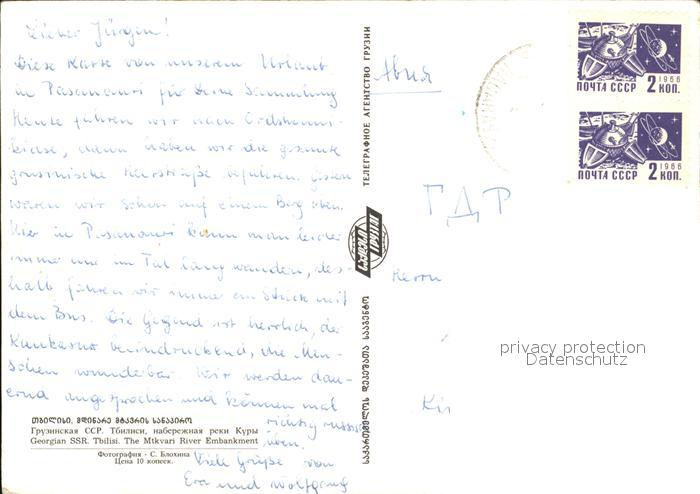 Lieber Jürgen!
Diese Karte von unserem Urlaub
in Pasanauri für Deine Sammlung
Heute fahren wir nach Ordshoni-
kidse, dann haben wir die gesamte
grusinische Heerstraße befahren. Gestern
waren wir schon auf einem Berg oben.
Hier in Pasanauri kann man leider
immer nur im Tal lang wandern, des-
halb fahren wir immer ein Stück mit
dem Bus. Die Gegend ist herrlich, der
Kaukasus beeindruckend, die Men-
schen wunderbar. Wir werden dau-
ernd angesprochen und können mal
richtig russisch
üben.
Viele Grüße von
Eva und Wolfgang
თბილისი, მდინარე მტკვრის სანაპირო
Грузинская ССР. Тбилиси, набережная реки Куры
Georgian SSR. Tbilisi. The Mtkvari River Embankment
Фотография - С. Блохина
Цена 10 копеек.
ТЕЛЕГРАФНОЕ АГЕНТСТВО ГРУЗИИ
საქართველოს დეპეშათა სააგენტო
Авиа
ПОЧТА СССР 1966 2 КОП.
ПОЧТА СССР 1966 2 КОП.
ГДР
Herrn
privacy protection
Datenschutz